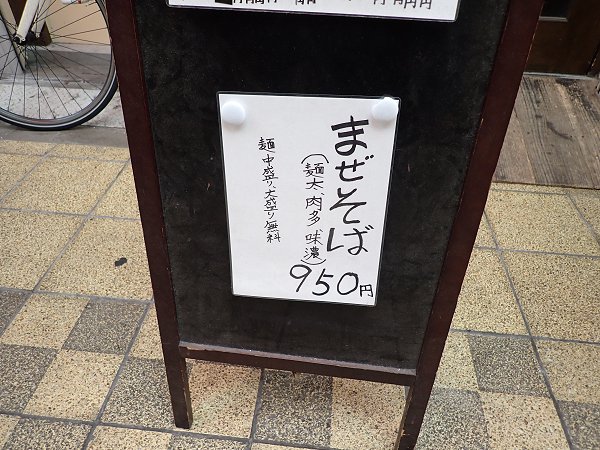 まぜそば
(麺太、肉多、味濃)
950円
麺中盛り、大盛り無料